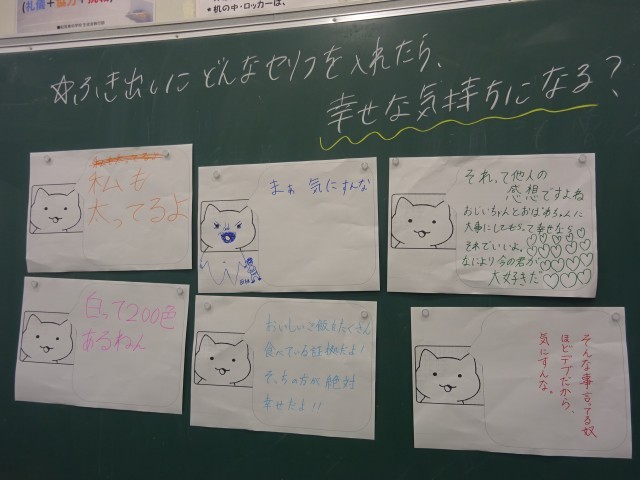 机の中・ロッカーは、
☆ふき出しに どんなセリフを入れたら、
幸せな気持ちになる?
私も
太ってるよ
まぁ 気にすんな
それって他人の
感想ですよね
おじいちゃんとおばあちゃんに
大事にしてもらって幸せなら
それでいいよ。
なにより今の君が
大好きだ
白って200色
あるねん
おいしいご飯をたくさん
食べている証拠だよ!
そっちの方が絶対
幸せだよ!!
そんな事言ってる奴
ほどデブだから、
気にすんな。